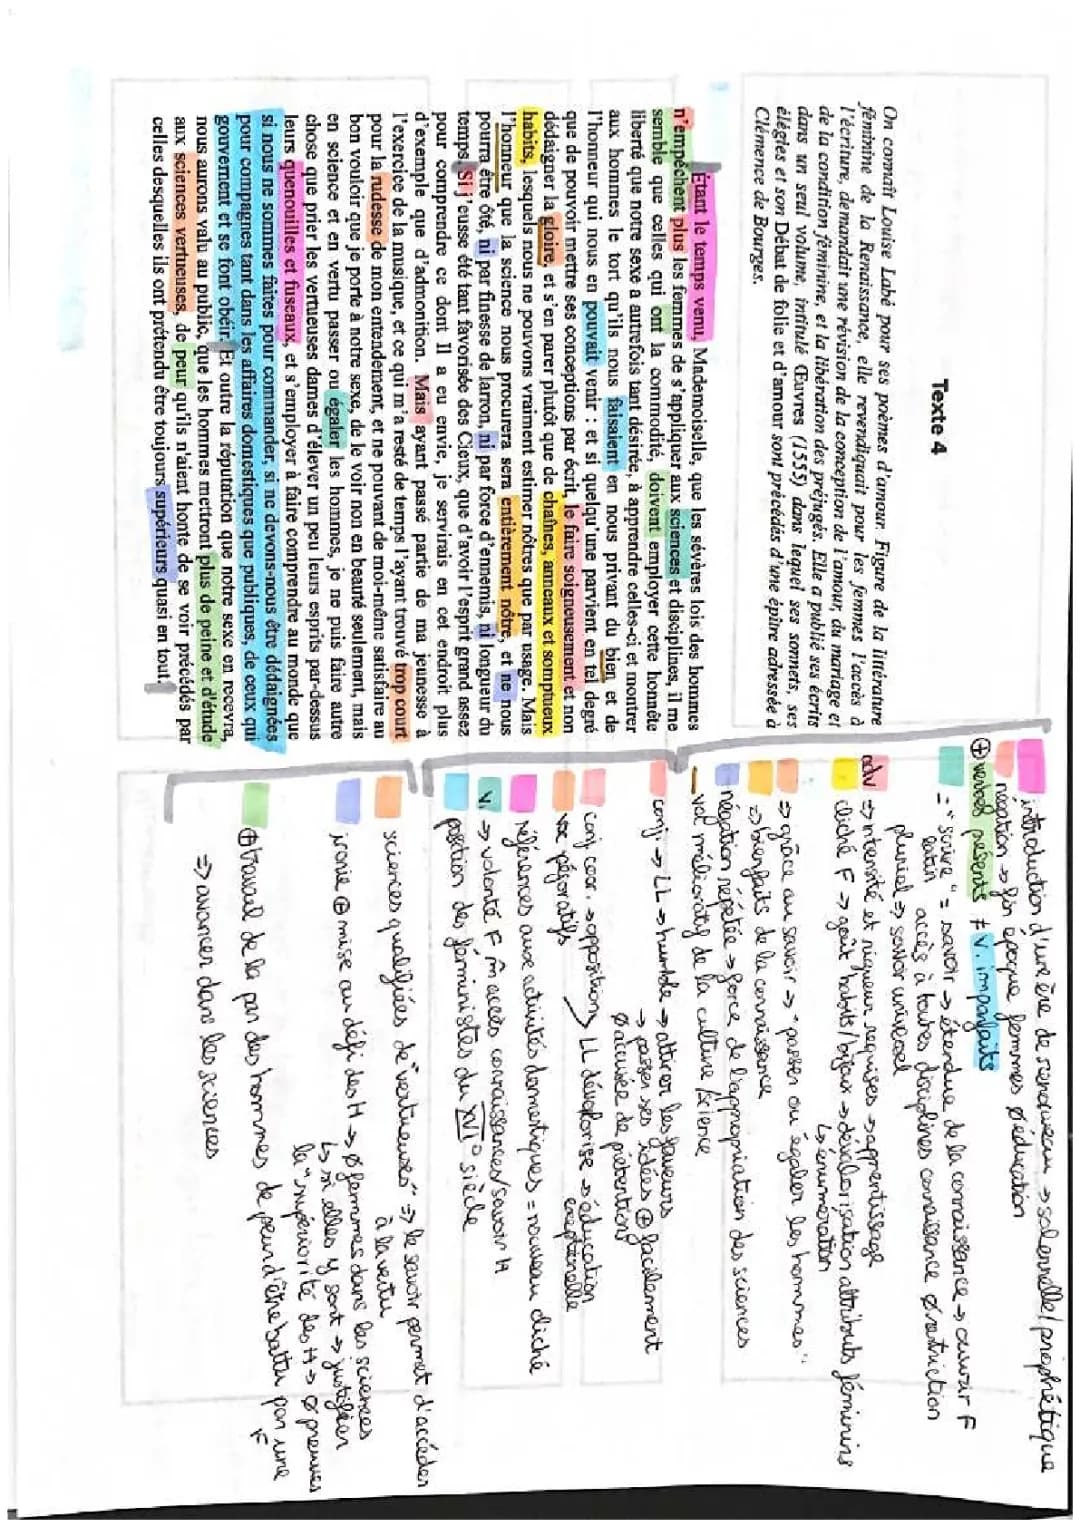 Texte 4
On connaît Louise Labé pour ses poèmes d'amour. Figure de la littérature
féminine de la Renaissance, elle revendiquait pour les femmes l'accès à
l'écriture, demandait une révision de la conception de l'amour, du mariage et
de la condition féminine, et la libération des préjugés. Elle a publié ses écrits
dans un seul volume, intitulé Œuvres (1555) dans lequel ses sonnets, ses
élégies et son Débat de folie et d'amour sont précédés d'une épître adressée à
Clémence de Bourges.
Étant le temps venu, Mademoiselle, que les sévères lois des hommes
n'empêchent plus les femmes de s'appliquer aux sciences et disciplines, il me
semble que celles qui ont la commodité, doivent employer cette honnête
liberté que notre sexe a autrefois tant désirée, à apprendre celles-ci et montrer
aux hommes le tort qu'ils nous faisaient en nous privant du bien et de
l'honneur qui nous en pouvait venir : et si quelqu'une parvient en tel degré
que de pouvoir mettre ses conceptions par écrit, le faire soigneusement et non
dédaigner la gloire, et s'en parer plutôt que de chaînes, anneaux et somptueux
habits, lesquels nous ne pouvons vraiment estimer nôtres que par usage. Mais
l'honneur que la science nous procurera sera entièrement nôtre, et ne nous
pourra être ôté, ni par finesse de larron, ni par force d'ennemis, ni longueur du
temps. Si j'eusse été tant favorisée des Cieux, que d'avoir l'esprit grand assez
pour comprendre ce dont Il a eu envie, je servirais en cet endroit plus
d'exemple que d'admonition. Mais ayant passé partie de ma jeunesse à
l'exercice de la musique, et ce qui m'a resté de temps l'ayant trouvé trop court
pour la rudesse de mon entendement, et ne pouvant de moi-même satisfaire au
bon vouloir que je porte à notre sexe, de le voir non en beauté seulement, mais
en science et en vertu passer ou égaler les hommes, je ne puis faire autre
chose que prier les vertueuses dames d'élever un peu leurs esprits par-dessus
leurs quenouilles et fuseaux, et s'employer à faire comprendre au monde que
si nous ne sommes faites pour commander, si ne devons-nous être dédaignées
pour compagnes tant dans les affaires domestiques que publiques, de ceux qui
gouvernent et se font obéir. Et outre la réputation que notre sexe en recevra,
nous aurons valu au public, que les hommes mettront plus de peine et d'étude
aux sciences vertueuses, de peur qu'ils n'aient honte de se voir précédés par
celles desquelles ils ont prétendu être toujours supérieurs quasi en tout.
introduction d'une ère de renouveau → solennelle/prophétique
négation → fin époque femmes ∅ éducation
⊕ verbes présents ≠ v. imparfaits
= "scire" = savoir → étendue de la connaissance → ouvrir F
latin accès à toutes disciplines connaissance ∅ restriction
pluriel → savoir universel
adv ⇒ intensité et rigueur requises → apprentissage
cliché F → goût habits/bijoux → dévalorisation attributs féminins
↳ énumération
⇒ grâce au savoir → "passer ou égaler les hommes"
⇒ bienfaits de la connaissance
négation répétée → force de l'appropriation des sciences
val mélioratif de la culture/science
conj → LL → humble → attirer les faveurs
→ passer ses idées ⊕ facilement
∅ accusée de prétention
conj coor. → opposition LL dévalorise → éducation
voc péjoratifs exceptionelle
références aux activités domestiques = nouveau cliché
v. → volonté F m̂ accès connaissances/savoir H
position des féministes du XVIe siècle
sciences qualifiées de "vertueuses" ⇒ le savoir permet d'accéder
à la vertu
ironie ⊕ mise au défi des H → ∅ femmes dans les sciences
↳ si elles y sont → justifier
la "supériorité des H → ∅ preuves
⊕ travail de la par des hommes de peur d'être battu par une
F
⇒ avancer dans les sciences